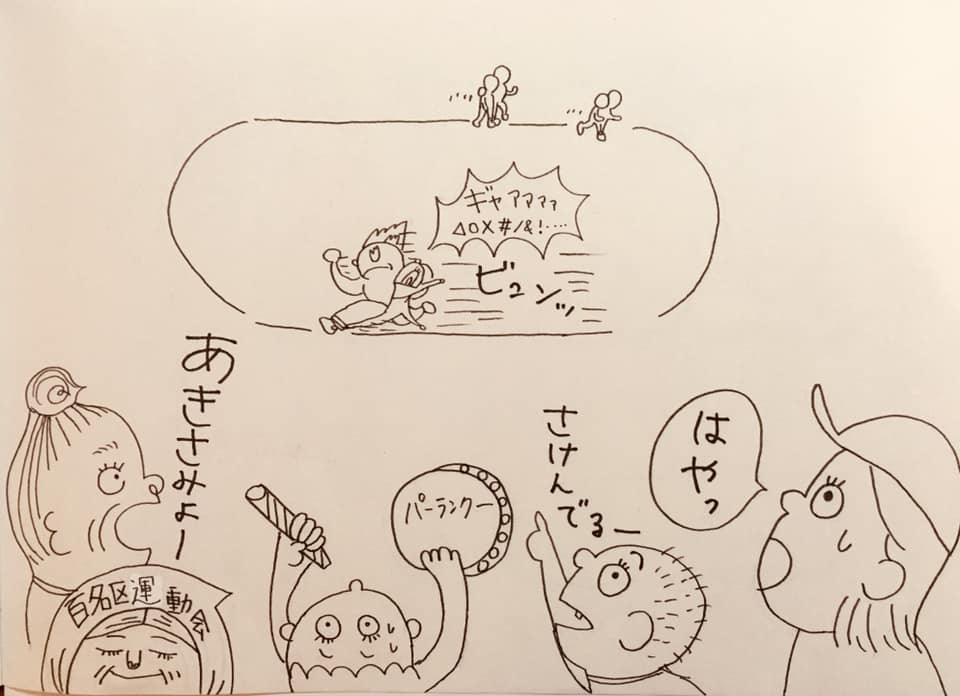 ギャアアアァ
△○×#/&!‥‥
ビュンッ
あきさみよー
さけんでるー
はやっ
パーランクー
百名区運動会